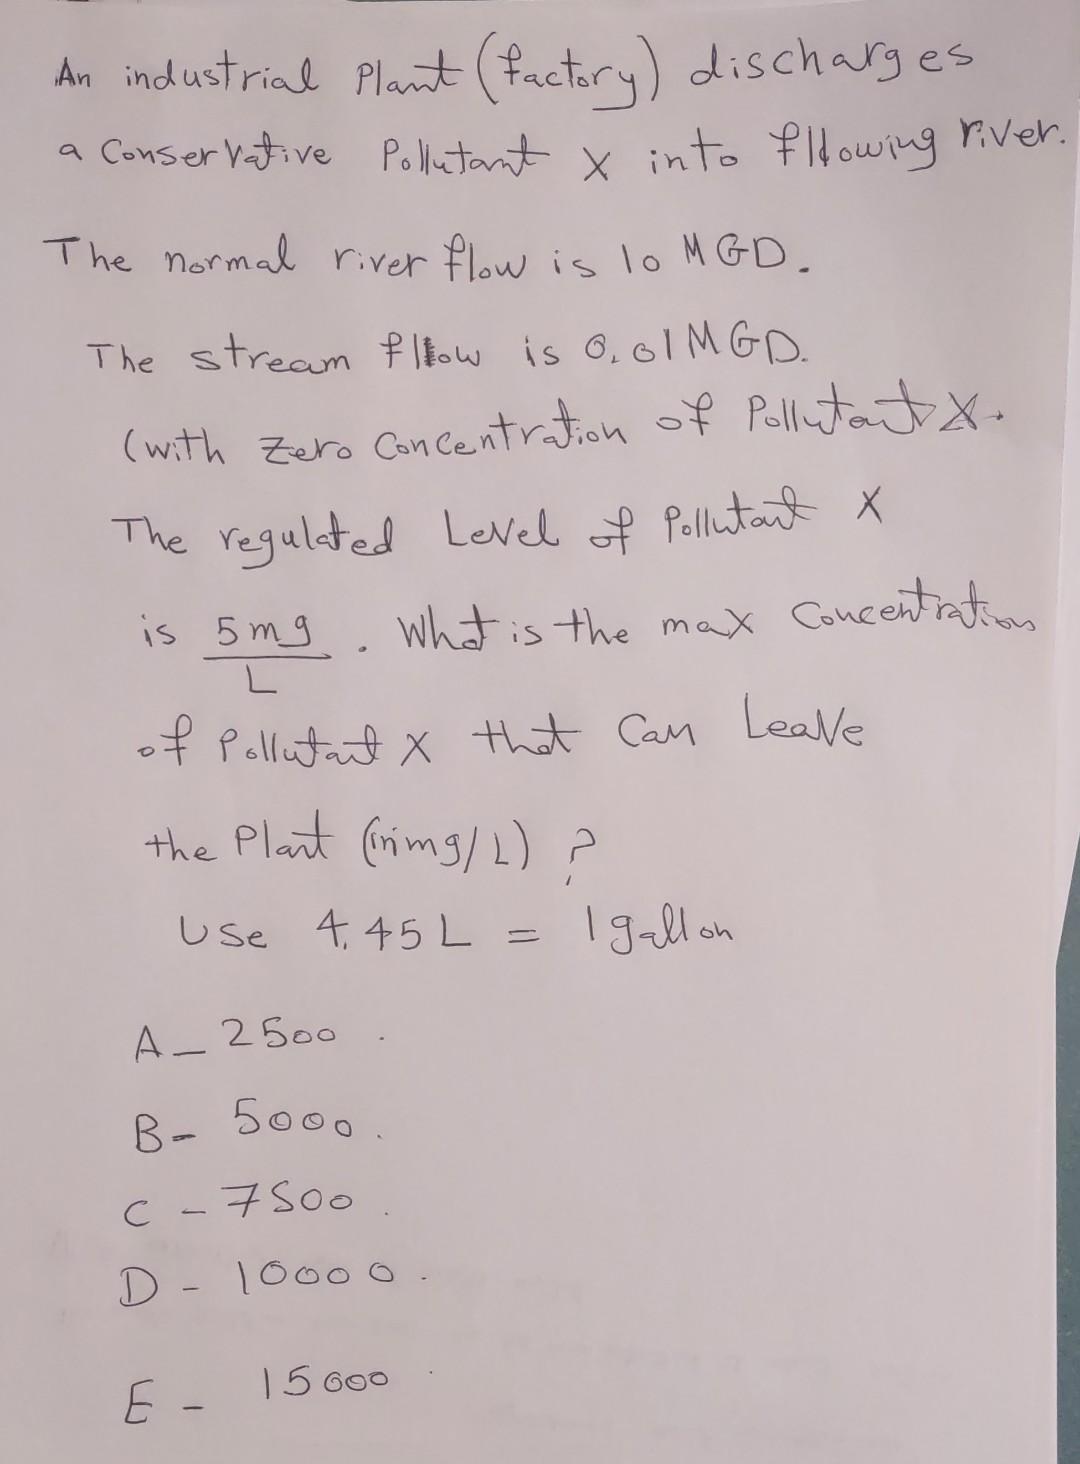 An industrial Plant (factory) discharges
a Conservative Pollutant X into flowing river.
The normal river flow is 10 MGD.
The stream flow is 0.01 MGD.
(with zero Concentration of Pollutant X.
The regulated Level of Pollutant X
is 5mg/L. What is the max Concentration
of Pollutant X that Can Leave
the Plant (in mg/L) ?
Use 4.45L = 1 gallon
A - 2500.
B - 5000.
C - 7500.
D - 10000.
E - 15000